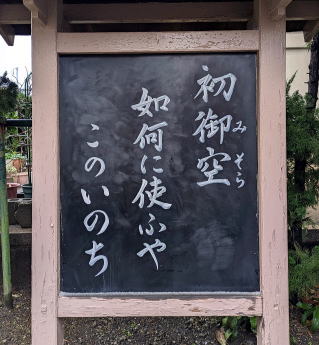 初御空
みそら
如何に使ふや
このいのち